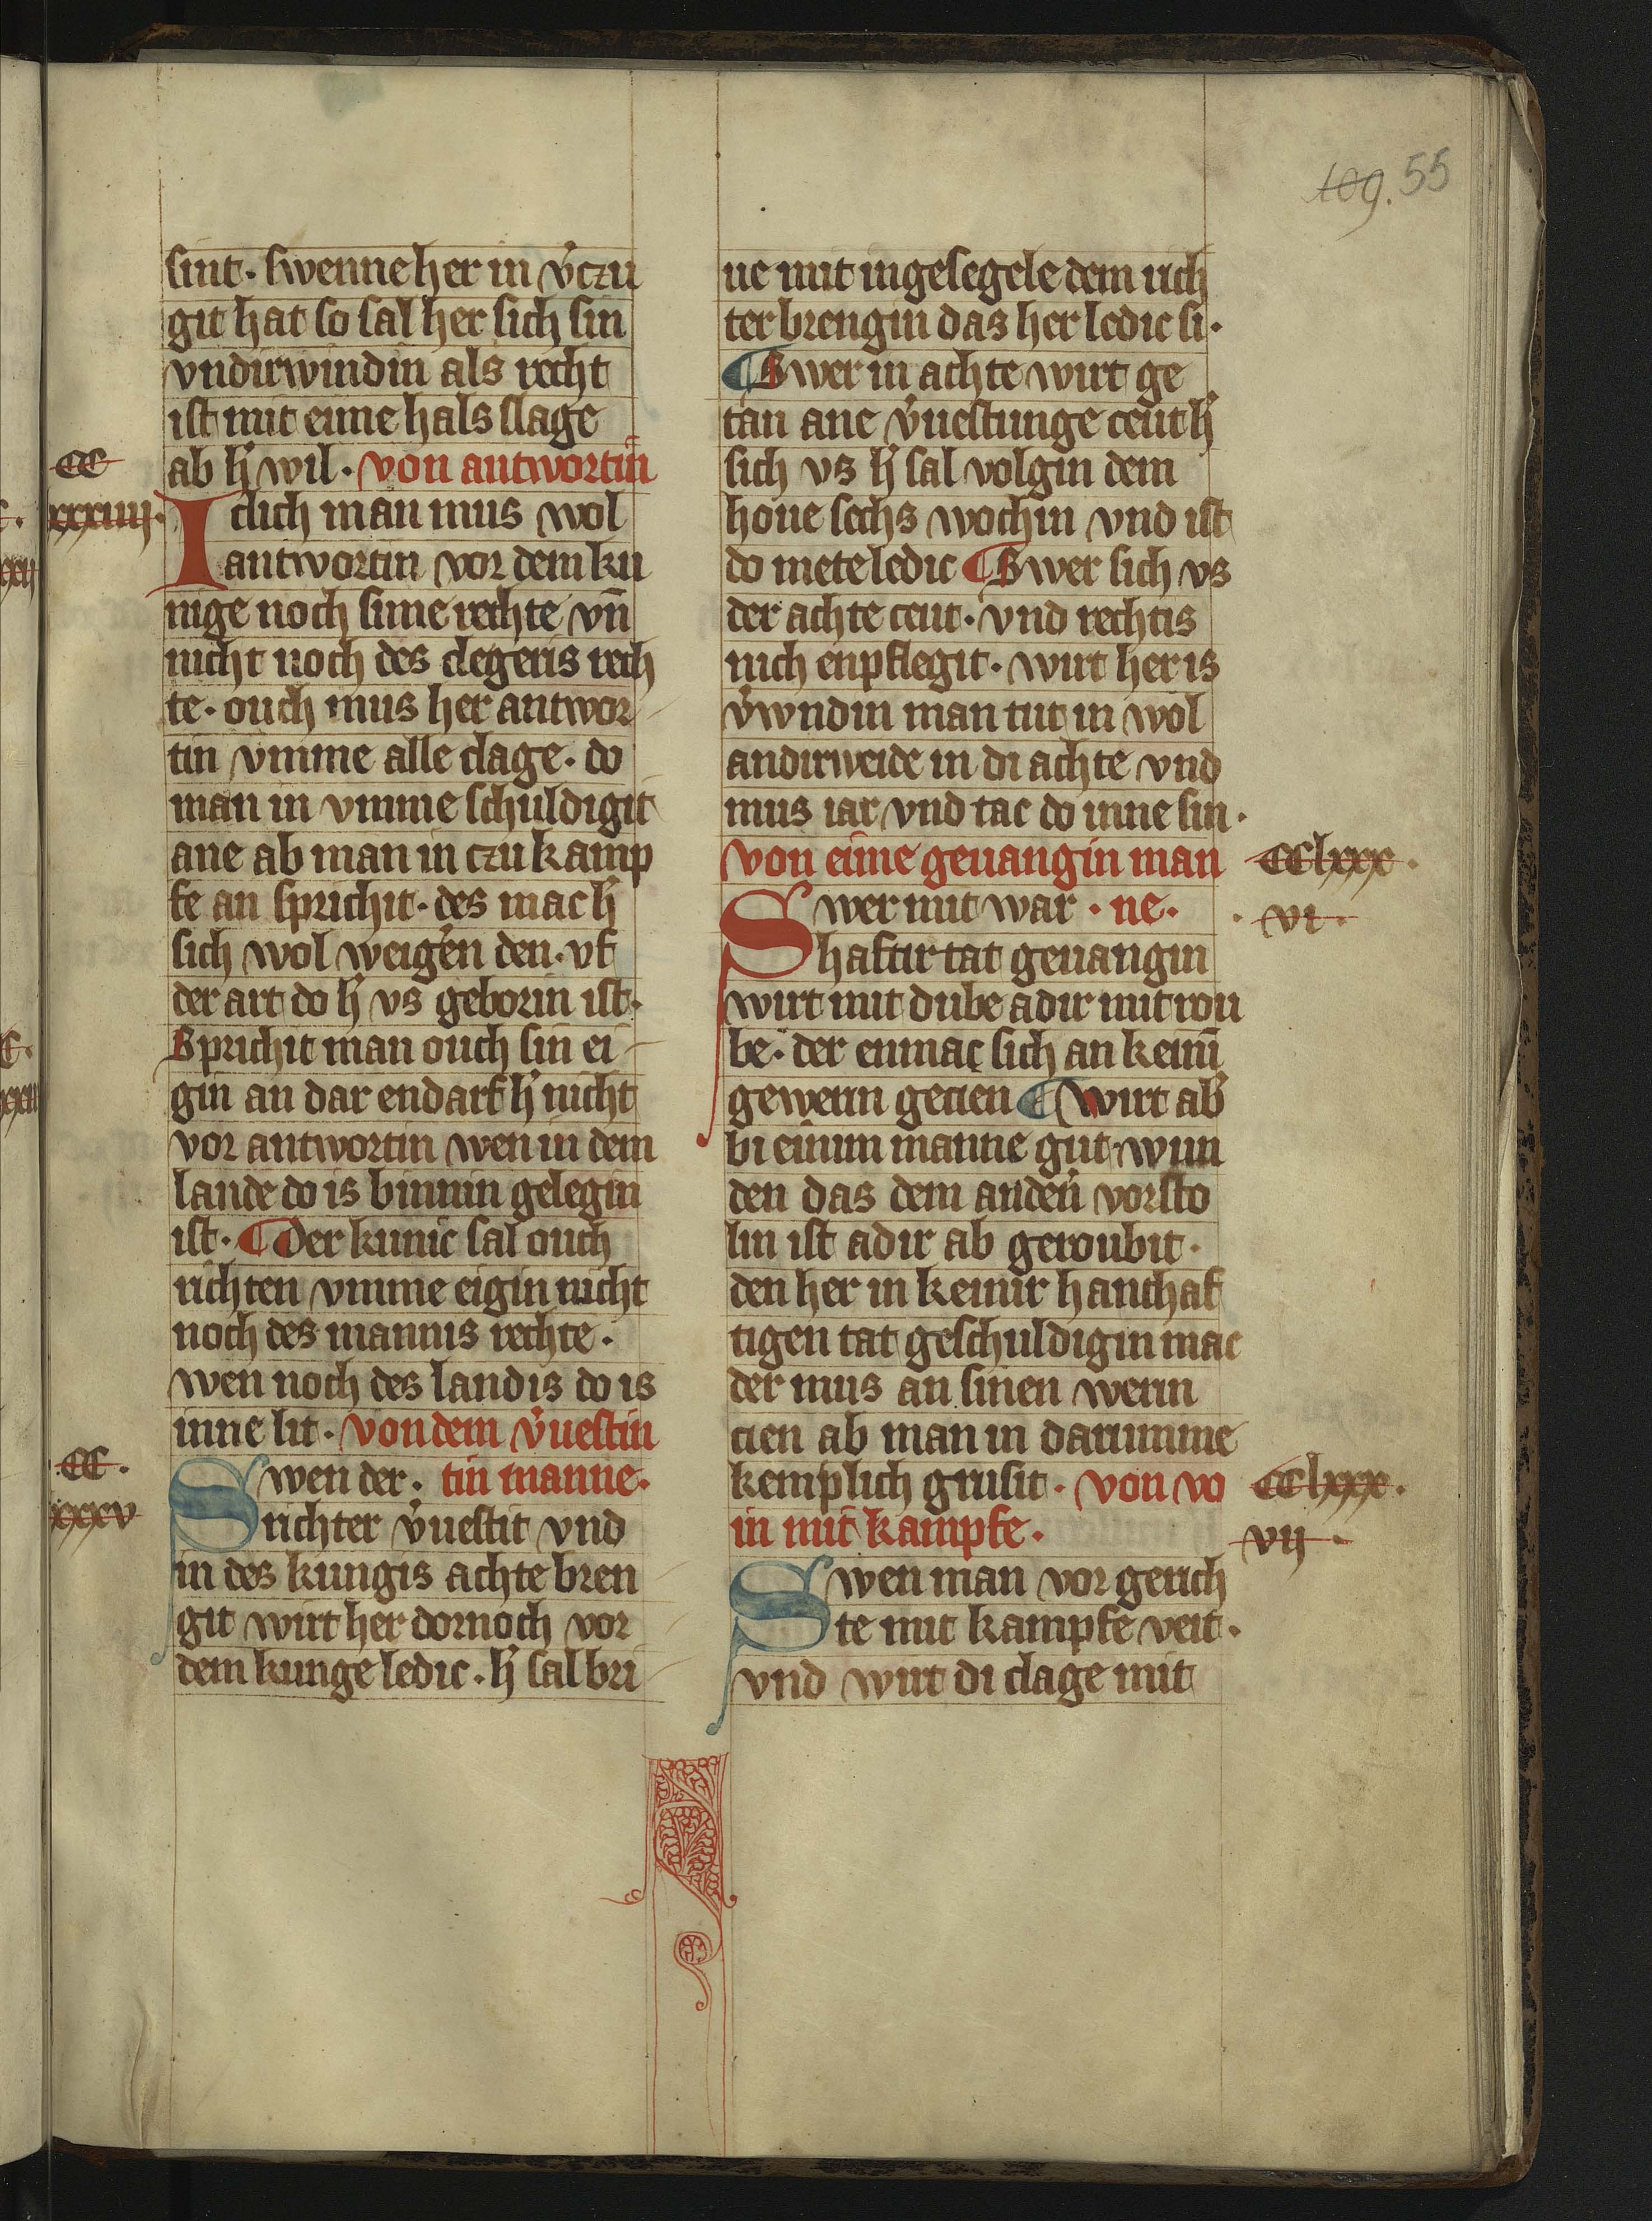 109. 55
sint. swenne her in v̾czu
git hat so sal her sich sin
vndirwindin als recht
ist mit eime hals slage
ab h̾ wil. von antwortin
CC
xxxiiij.
Iclich man mus wol
antwortin vor dem ku
nige noch sime rechte vn̄
nicht noch des clegeris rech
te. ouch mus her antwor
tin vmme alle clage. do
man in vmme schuldigit
ane ab man in czu kamp
fe an sprichit. des mac h̾
sich wol weig̾en den. vf
der art do h̾ vs geborin ist.
Sprichit man ouch sin ei
gin an dar endarf h̾ nicht
vor antwortin wen in dem
lande do is binnin gelegin
ist. ¶ Der kunic sal ouch
richten vmme eigin nicht
noch des mannis rechte.
wen noch des landis do is
inne lit. von dem v̾uestin
CC.
xxxv
Swen der. tin manne.
richter v̾uestit vnd
in des kungis achte bren
git wirt her dornoch vor
dem kunge ledic. h̾ sal bri
ue mit ingesegele dem rich
ter brengin das her ledic si.
¶ Swer in achte wirt ge
tan ane v̾uestunge ceut h̾
sich vs h̾ sal volgin dem
houe sechs wochin vnd ist
do mete ledic ¶ Swer sich vs
der achte ceut. vnd rechtis
nich enpflegit. wirt her is
v̾wndin man tut in wol
andirweide in di achte vnd
mus iar vnd tac do inne sin.
von eime geuangin man
CClxxx.
vi.
Swer mit war. ne.
haftir tat geuangin
wirt mit dube adir mit rou
be. der enmac sich an keinī
gewerin gecien ¶ Wirt ab̾
bi einim manne gut wun
den das dem anden̾ vorsto
lin ist adir ab geroubit.
den her in keinir hanthaf
tigen tat geschuldigin mac
der mus an sinen werin
cien ab man in darumme
kemplich grusit. von vo
in mit kampfe.
CClxxx.
vij.
Swen man vor gerich
te mit kampfe veit.
vnd wirt di clage mit